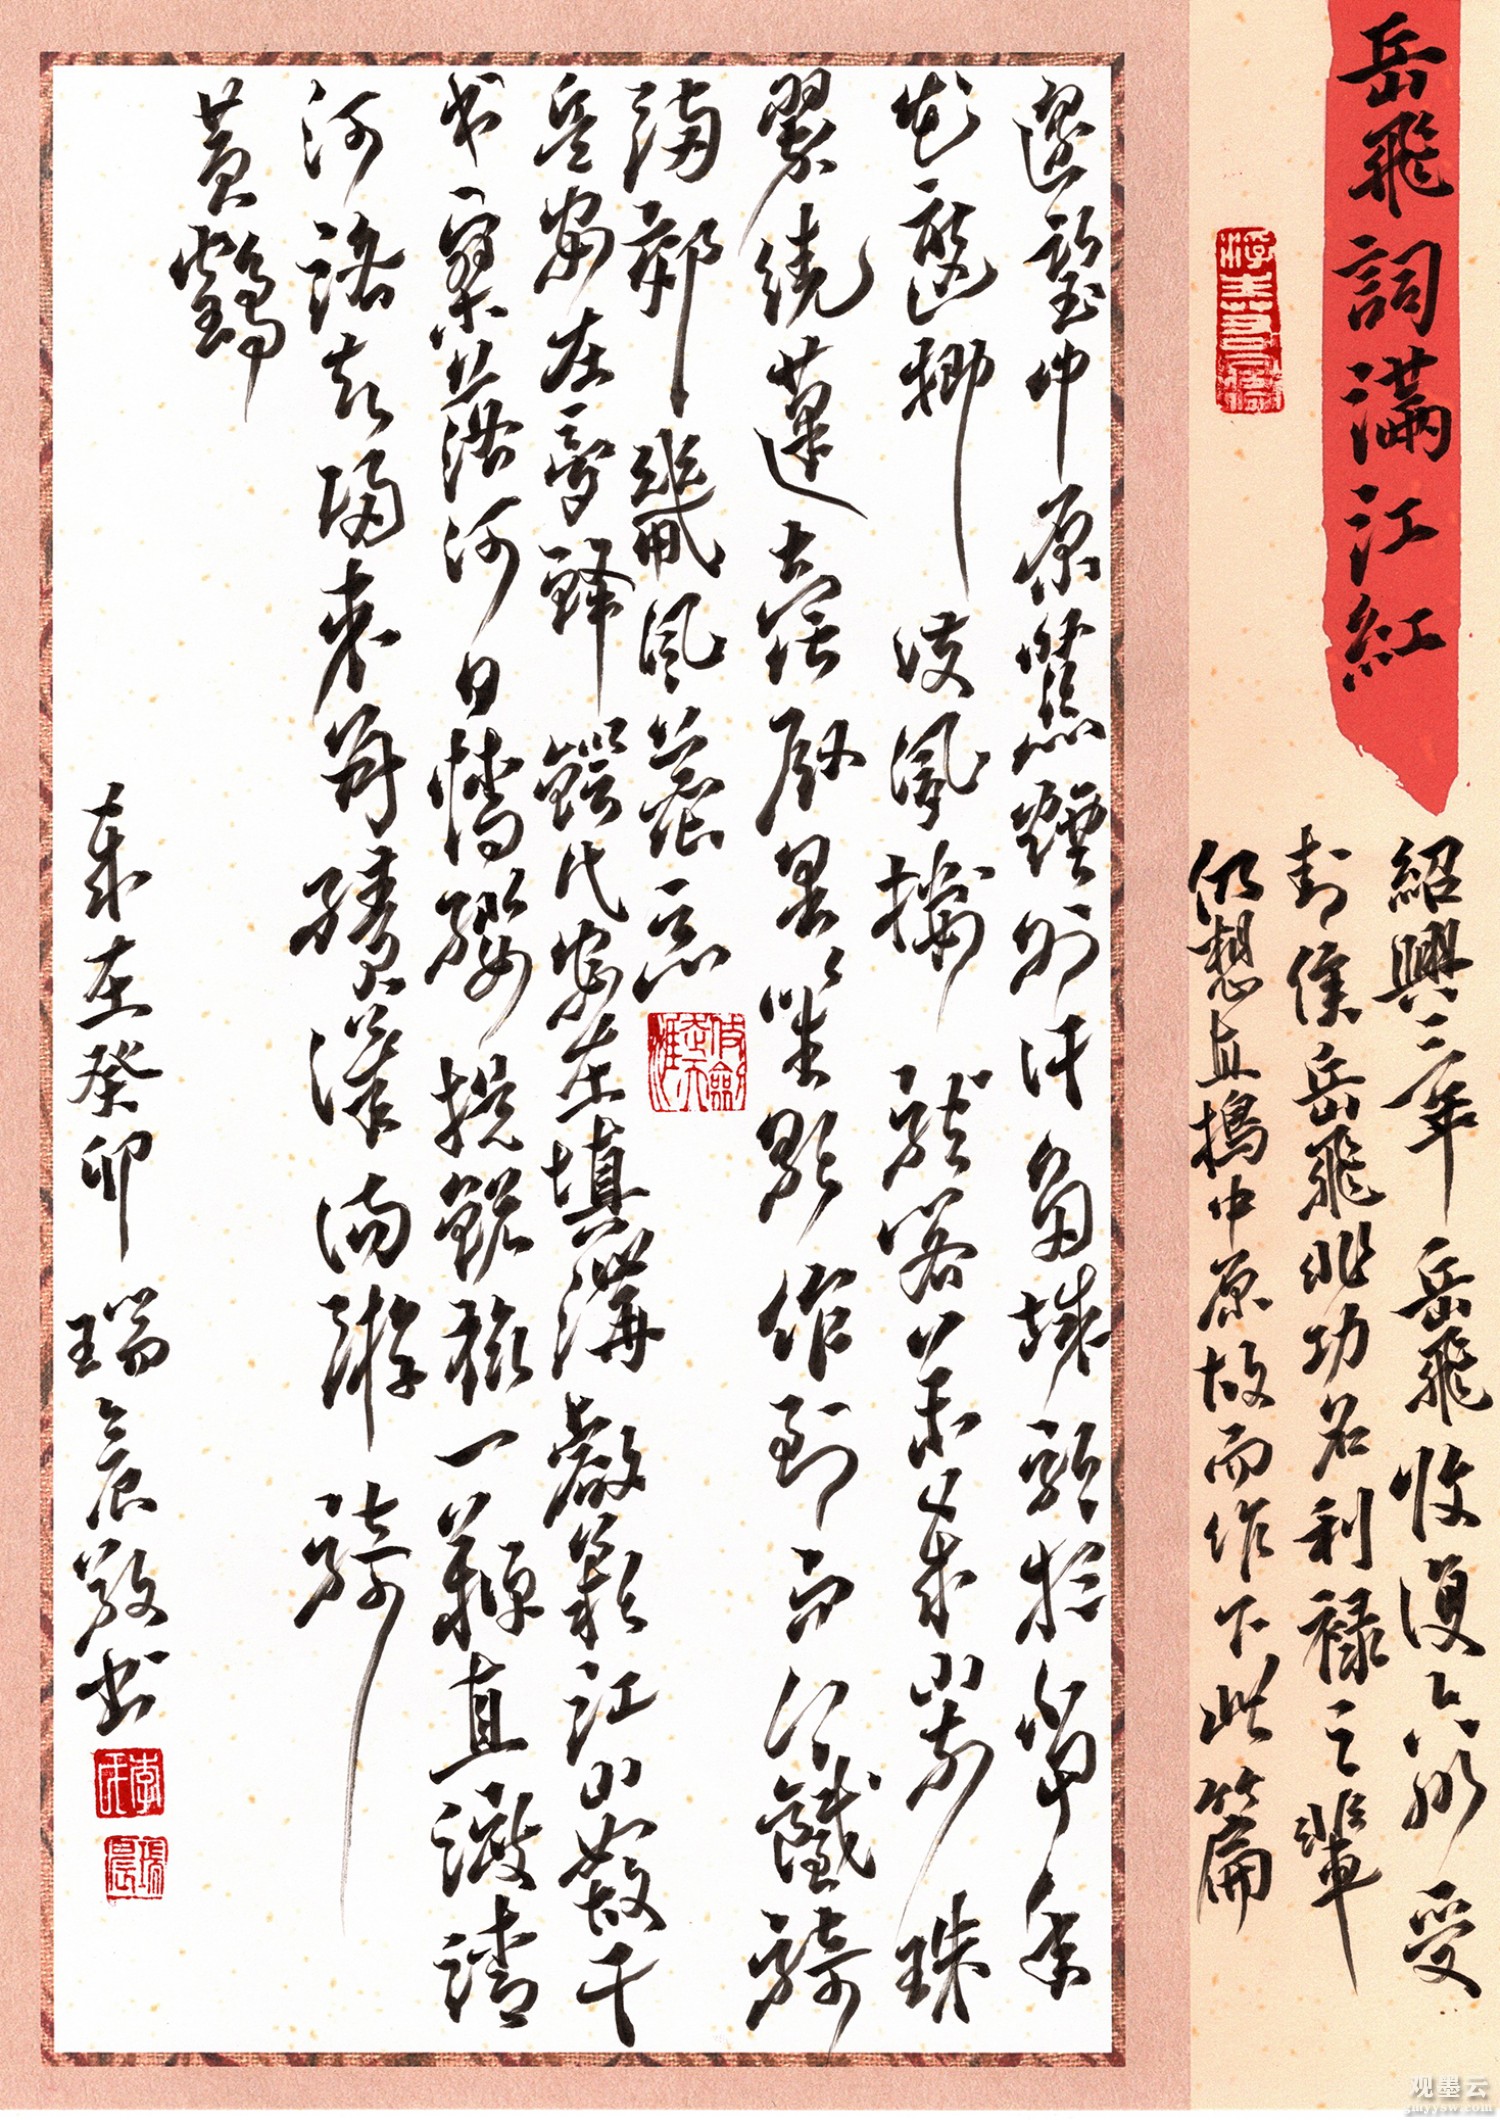 岳飛詞滿江紅
紹興三年岳飛收復六郡受
封侯岳飛非功名利祿之輩
仍想直搗中原故而作下此篇
遥望中原荒煙外许多城郭想當年
花遮柳護鳳樓龍閣萬歲山前珠
翠繞蓬壺殿里笙歌作到而今鐵騎
滿郊畿風塵惡
兵安在膏鋒鍔民安在填溝壑歎江山如故千
村寥落何日請纓提銳旅一鞭直渡清
河洛却歸來再續漢陽游騎
黄鶴
歲在癸卯瑞晨敬书
观墨云
gmyysw.com